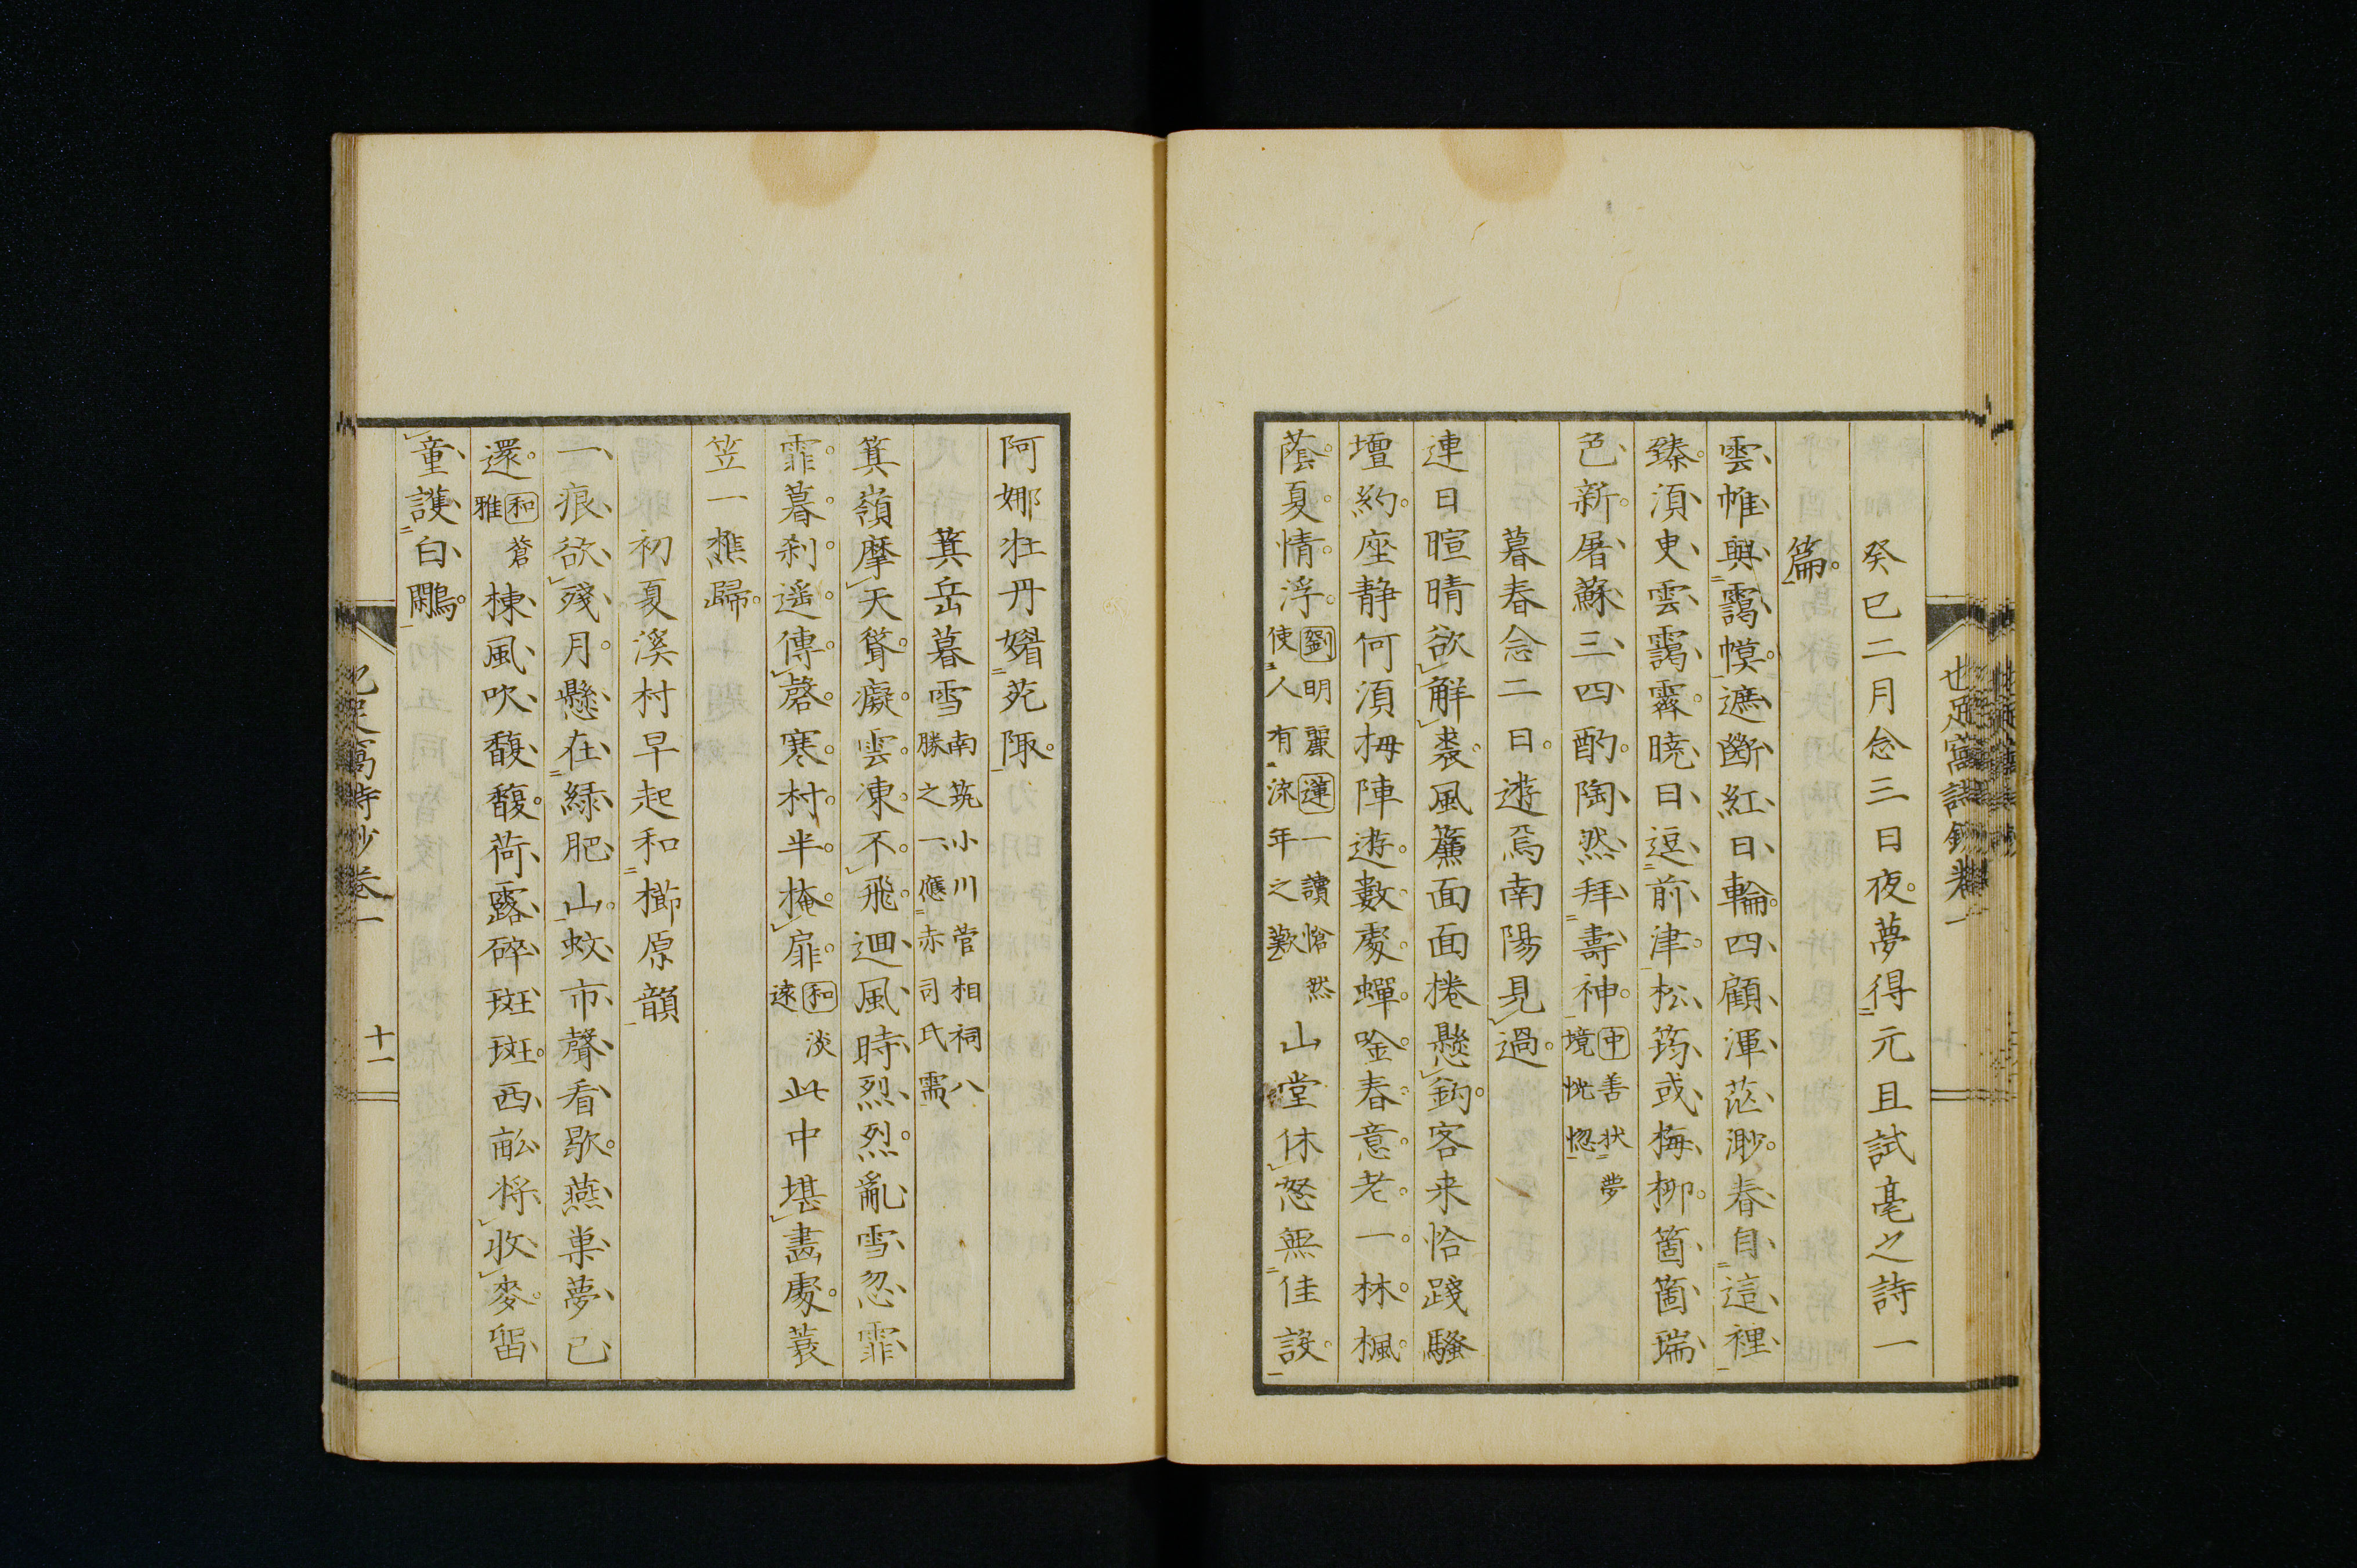 癸巳二月念三日夜。夢得元旦試毫之詩一
篇。
雲帷與靄幙。遮斷紅日輪。四顧渾茫渺。春自這裡
臻。須臾雲靄霽。曉日逗前津。松筠或梅柳。箇箇瑞
色新。屠蘇三四酌。陶然拜壽神。㊥善状夢境恍惚
暮春念二日。遊焉南陽見過。
連日暄晴欲解裘。風簾面面捲懸鉤。客来恰踐騷
壇約。座静何須拇陣遊。數處蟬吟春意老。一林楓
蔭夏情浮。劉明麗蓮一讀愴然使人有流年之歎山堂休怒無佳設。
也足窩詩鈔卷一
阿娜牡丹媚苑陬。
箕岳暮雪南筑小川菅相祠八勝之一、應赤司氏需
箕嶺摩天聳。癡雲凍不飛。迴風時烈烈。亂雪忽霏
霏。暮刹遥傳磬。寒村半掩扉。和淡遠此中堪畵處。蓑
笠一樵歸。
初夏溪村早起和櫛原韻
一痕欲殘月。懸在緑肥山。蚊市聲看歇。燕巢夢已
還。和蒼雅楝風吹馥馥。荷露碎斑斑。西畆将收麥。留
童護白鷴。
也足窩詩鈔卷一
十一